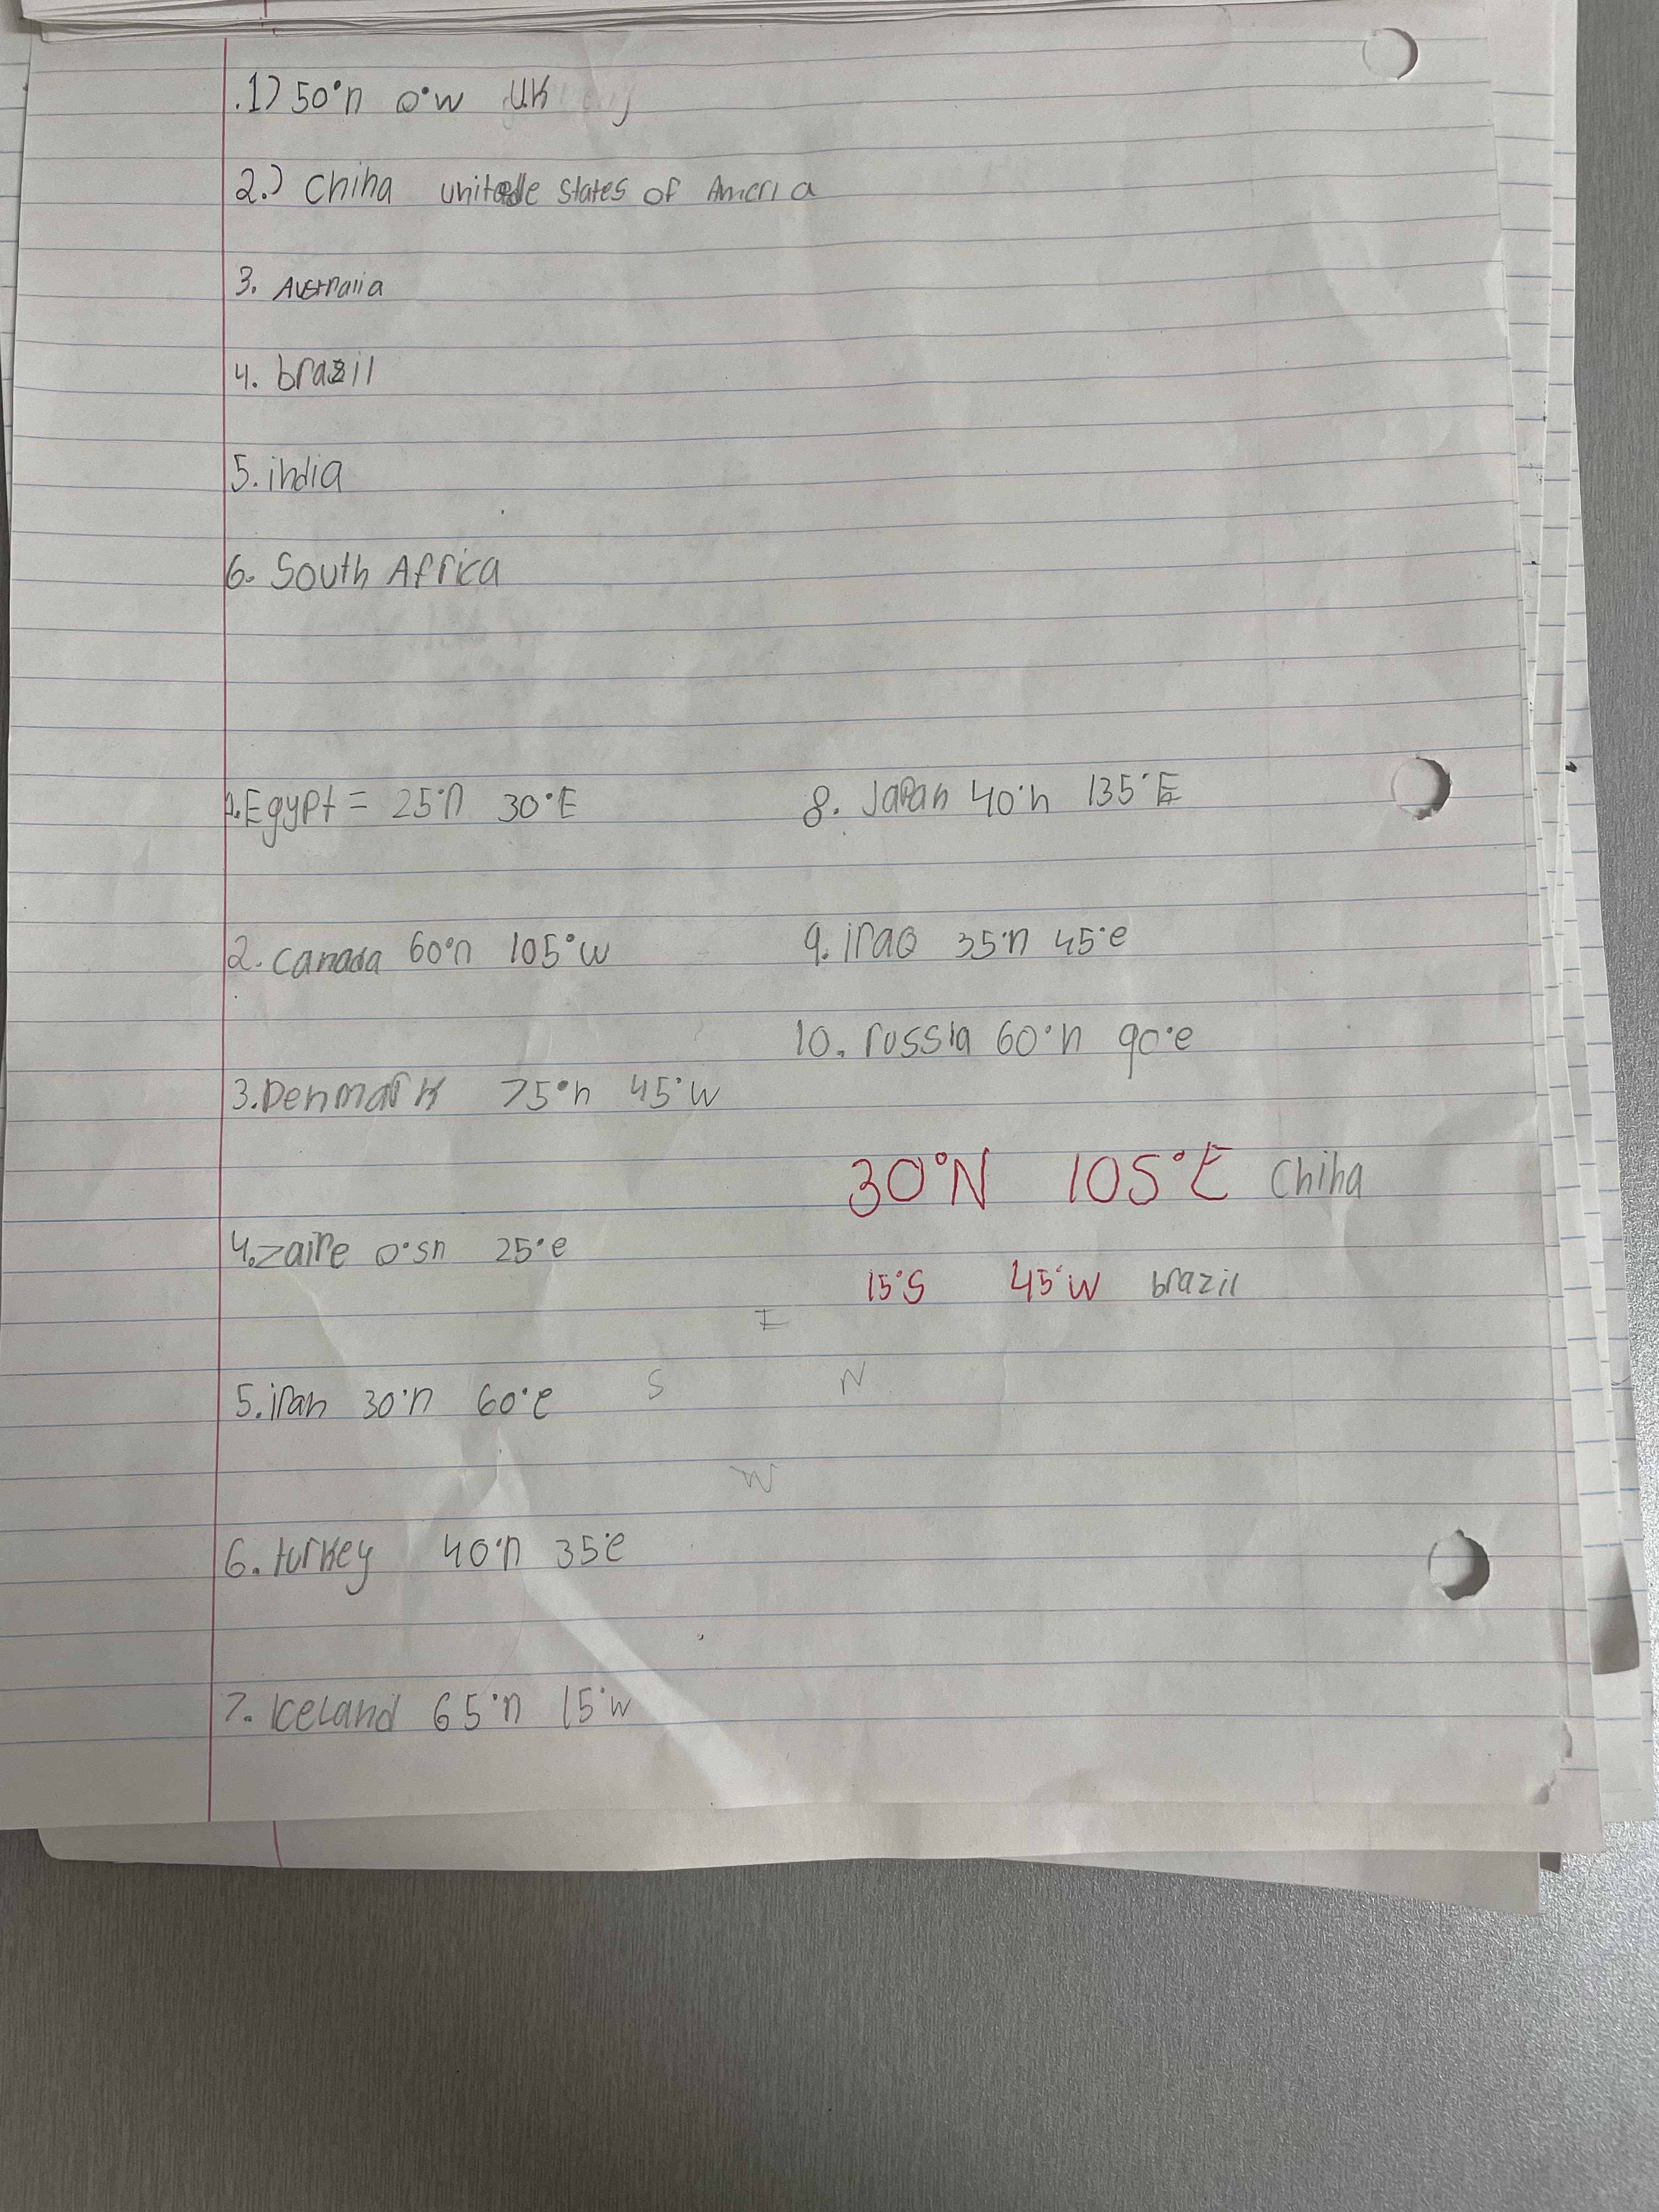 .1) 50°n 0°w U.K
2.) China unitedle states of Ameria
3. Australia
4. brazil
5. india
6. South Africa
1. Egypt = 25°n 30°E
2. Canada 60°n 105°w
3. Denmark 75°n 45°w
4. zaire 0°sn 25°e
5. iran 30°n 60°e
6. turkey 40°n 35°e
7. Iceland 65°n 15°w
8. Japan 40°n 135°E
9. iraq 35°n 45°e
10. russia 60°n 90°e
30°N 105°E China
15°S 45°W brazil
E
S N
W